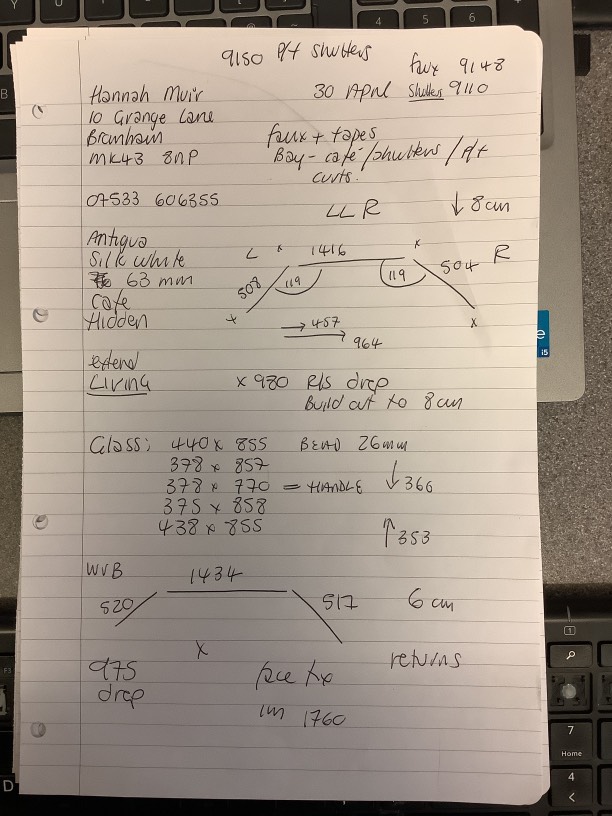 9150 P/t Shutters
faux 9148
30 April Shutters 9110
Hannah Muir
10 Grange Lane
Bromham
MK43 8NP
faux + tapes
Bay - café / shutters / p/t
curts.
07533 606355
LL R ↓ 8cm
Antigua
Silk white
63 mm
Cafe
Hidden
L x 1416 x R
508 119 119 504
x x
→ 457
→ 964
extend
Living x 980 R/s drop
Build out to 8cm
Glass: 440 x 855 BEAD 26mm
378 x 857
378 x 770 = HANDLE ↓ 366
375 x 858
438 x 855 ↑ 353
WVB 1434
520 517 6 cm
x
975
drop
face fix
returns
1m 1760
7
Home
4
5
6
i5